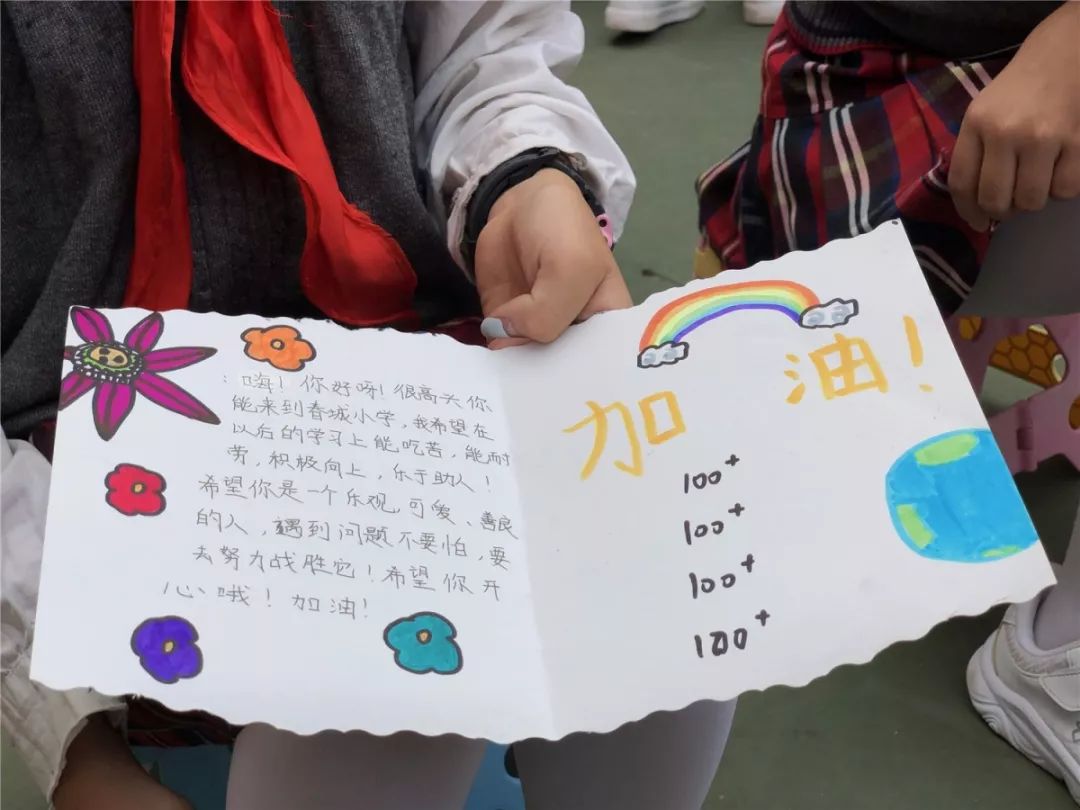 ：嗨！你好呀！很高兴你
能来到春城小学，我希望在
以后的学习上能吃苦，能耐
劳，积极向上，乐于助人！
希望你是一个乐观，可爱、善良
的人，遇到问题不要怕，要
去努力战胜它！希望你开
心哦！加油！
加油！
100+
100+
100+
100+